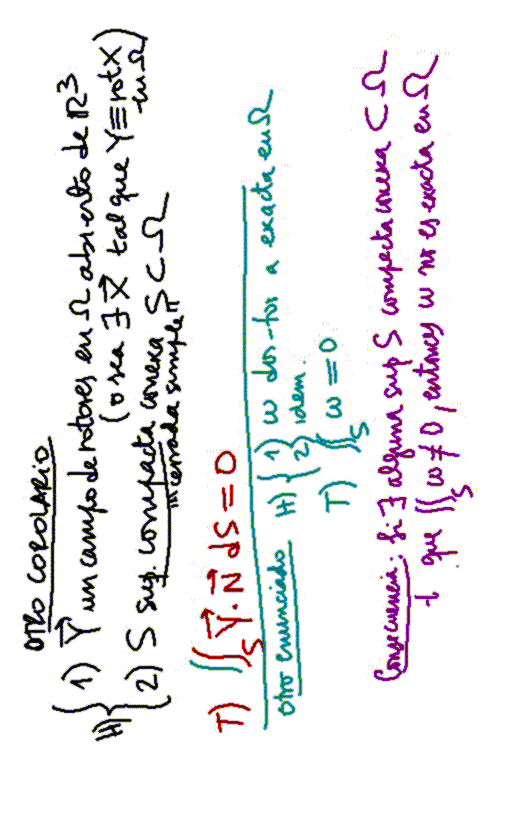 OTRO COROLARIO
H) { 1) Y⃗ un campo de rotores en Ω abierto de R³
(o sea ∃ X⃗ tal que Y ≡ rot X en Ω)
2) S sup. compacta conexa S ⊂ Ω
"cerrada simple"
T) ∬_S Y⃗ · N⃗ dS = 0
otro enunciado H) { 1) ω dos-for a exacta en Ω
2) idem.
T) ∬_S ω = 0
Consecuencia: Si ∃ alguna sup S compacta conexa ⊂ Ω
t que ∬_S ω ≠ 0, entonces ω no es exacta en Ω